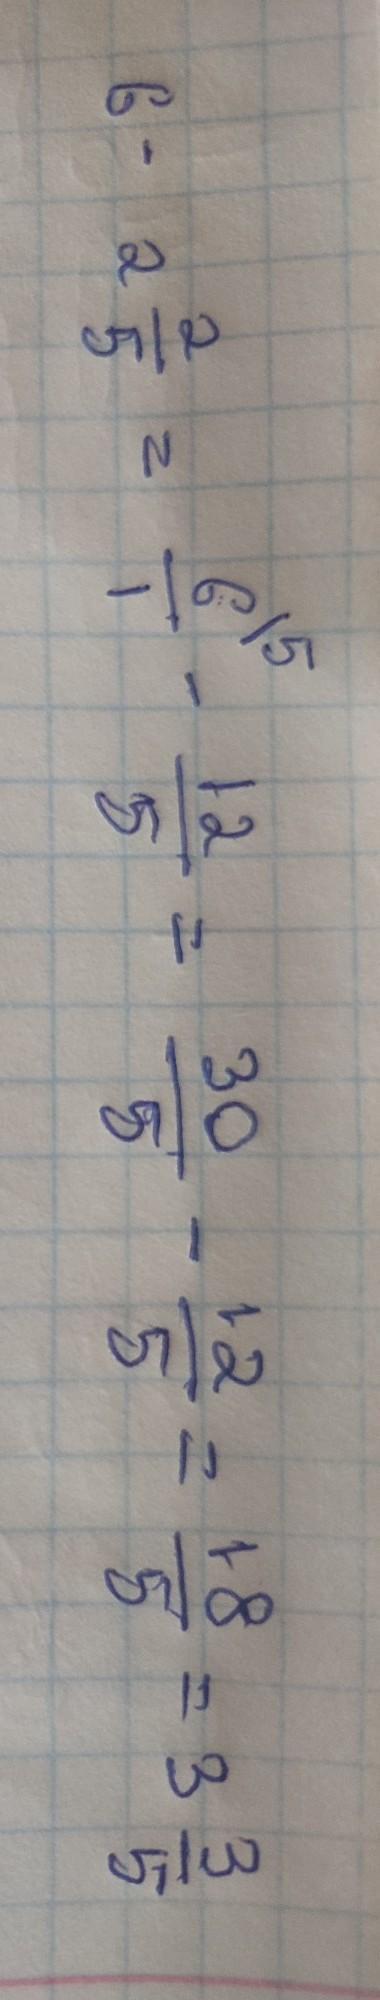 6 - 2 2/5 = 6\5/1 - 12/5 = 30/5 - 12/5 = 18/5 = 3 3/5